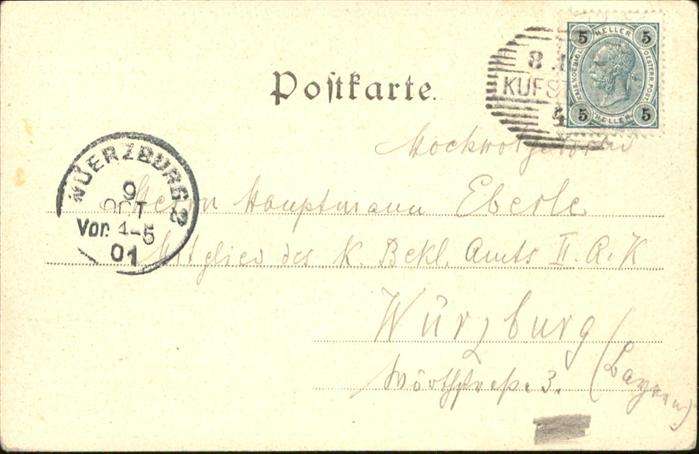 Postkarte.
5 HELLER 5
5 HELLER 5
8
KUFS
Hochwohlgeboren
WUERZBURG 2
9
OCT
Vor. 4-5
01
Herrn Hauptmann Eberle
Mitglied des K. Bekl. Amts II. A. K
Würzburg
(Bayern)
Wörthstraße 3.